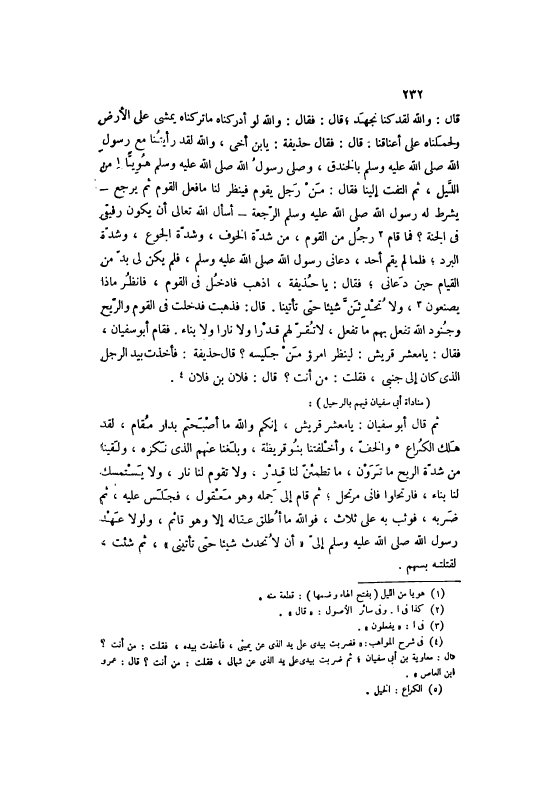 ٢٣٢
قال : والله لقد كنا نجهد ؛ قال : فقال : والله لو أدركناه ماتركناه يمشى على الأرض
ولحملناه على أعناقنا : قال : فقال حذيفة : يابن أخى ، والله لقد رأيتُنا مع رسول
الله صلى الله عليه وسلم بالخندق ، وصلى رسولُ الله صلى الله عليه وسلم هُوِيًّا ١ من
اللَّيل ، ثم التفت إلينا فقال : مَنْ رَجل يقوم فينظر لنا مافعل القوم ثم يرجع -
يشرط له رسول الله صلى الله عليه وسلم الرّجعة - أسأل الله تعالى أن يكون رفيقى
فى الجنة ؟ فما قام ٢ رجُل من القوم ، من شدّة الخوف ، وشدّة الجوع ، وشدّة
البرد ؛ فلما لم يقم أحد ، دعانى رسول الله صلى الله عليه وسلم ، فلم يكن لى بدّ من
القيام حين دَعانى ؛ فقال : يا حُذيفة ، اذهب فادخُل فى القوم ، فانظُر ماذا
يصنعون ٣ ، ولا تُحْدِثَنَّ شيئا حتَّى تأتينا . قال : فذهبت فدخلت فى القوم والرّيح
وجُنود الله تفعل بهم ما تفعل ، لاتُقرّ لهم قِدْرا ولا نارا ولا بناء . فقام أبو سفيان ،
فقال : يامعشر قريش : لينظر امرؤ مَنْ جَليسه ؟ قال حذيفة : فأخذت بيد الرجل
الذى كان إلى جنبى ، فقلت : من أنت ؟ قال : فلان بن فلان ٤ .
( مناداة أبى سفيان فيهم بالرحيل ) :
ثم قال أبو سفيان : يامعشر قريش ، إنكم والله ما أصْبَحتم بدار مُقام ، لقد
هلك الكُراع ٥ والخفّ ، وأخْلفتنا بنُو قريظة ، وبلَغنا عنهم الذى نَكره ، ولَقينا
من شدّة الريح ما تَرَوْن ، ما تطمئنّ لنا قِدْر ، ولا تقوم لنا نار ، ولا يَسْتمسك
لنا بناء ، فارتحلوا فانى مرتحل ؛ ثم قام إلى جَمله وهو مَعْقول ، فجَلَس عليه ، ثم
ضَربه ، فوثب به على ثلاث ، فوالله ما أُطلق عقاله إلا وهو قائم ، ولولا عَهْد
رسول الله صلى الله عليه وسلم إلىّ « أن لا تُحدث شيئا حتى تأتينى » ، ثم شئت ،
لقتلته بسهم .
(١) هويا من الليل ( بفتح الهاء وضمها ) : قطعة منه .
(٢) كذا فى ا . وفى سائر الأصول : « قال » .
(٣) فى ا : « يفعلون » .
(٤) فى شرح المواهب : « فضربت بيدى على يد الذى عن يمينى ، فأخذت بيده ، فقلت : من أنت ؟
قال : معاوية بن أبى سفيان ؛ ثم ضربت بيدى على يد الذى عن شمالى ، فقلت : من أنت ؟ قال : عمرو
ابن العاص » .
(٥) الكراع : الخيل .